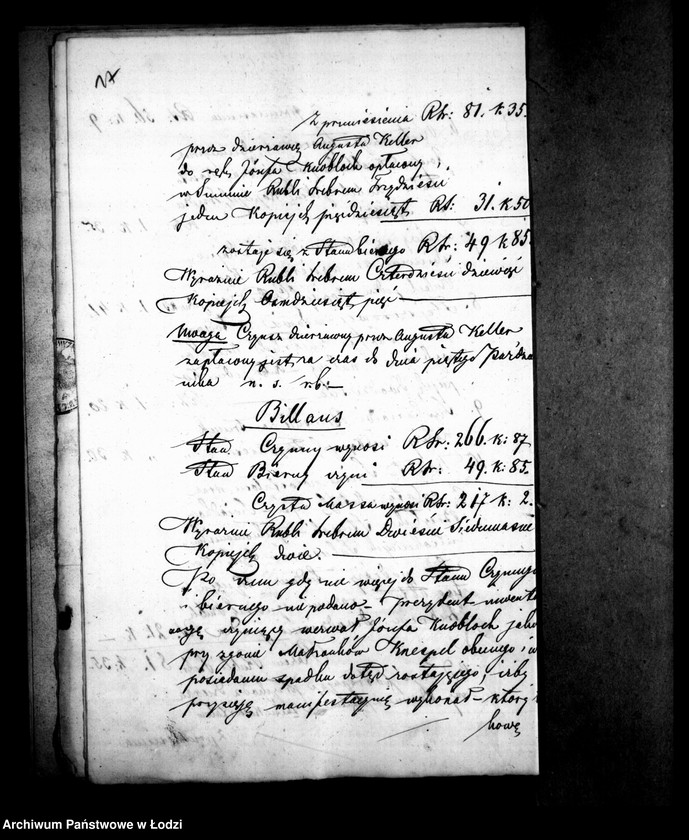 17
Z przeniesienia Rsr: 81. k 35.
przez dzierżawcę Augusta Keller
do rąk Józefa Knobloch opłacony,
w Summie Rubli srebrem Trzydzieści
jeden Kopiejek pięćdziesiąt Rs: 31. k 50
zostaje się z Stanu biernego Rsr: 49 k 85.
Wyraźnie Rubli srebrem Czterdzieści dziewięć
Kopiejek Osmdziesiąt pięć
Uwaga Czynsz dzierżawny przez Augusta Keller
zapłacony jest za czas do dnia piętego Paźdz
nika n. s. r. b.
Billans
Stan Czynny wynosi RSr: 266. k: 87
Stan Bierny czyni Rsr: 49. k: 85.
Czysta Massa wynosi RSr: 217 k: 2.
Wyraźnie Rubli srebrem Dwieście Siedmnaście
Kopiejek dwie.
Po czem gdy nic więcej do Stanu Czynnego
i biernego nie podano – prezydent inwenta
czyniący wezwał Józefa Knobloch jako
przy zgonie Małżonków Knespel obecnego, i w
posiadaniu spadku dotąd zostającego, iżby
przysięgę manifestacyjną wykonał – który
howę
Archiwum Państwowe w Łodzi